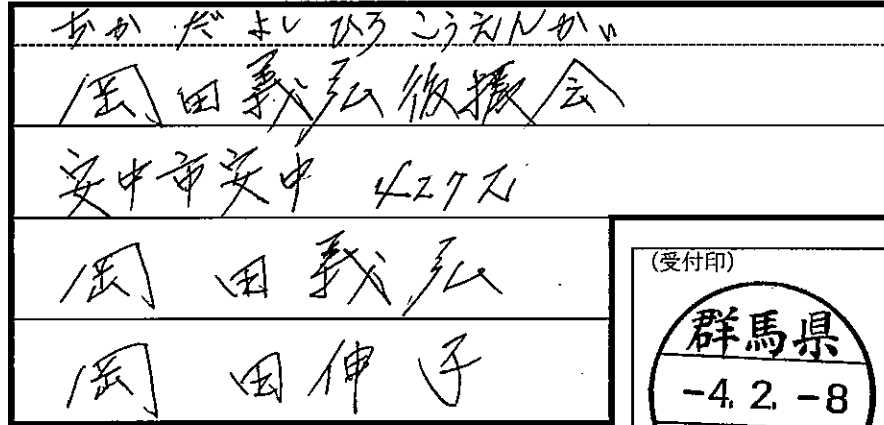 おかだよしひろこうえんかい
岡田義弘後援会
安中市安中
岡田義弘
岡田伸子
(受付印)
群馬県
-4. 2. -8